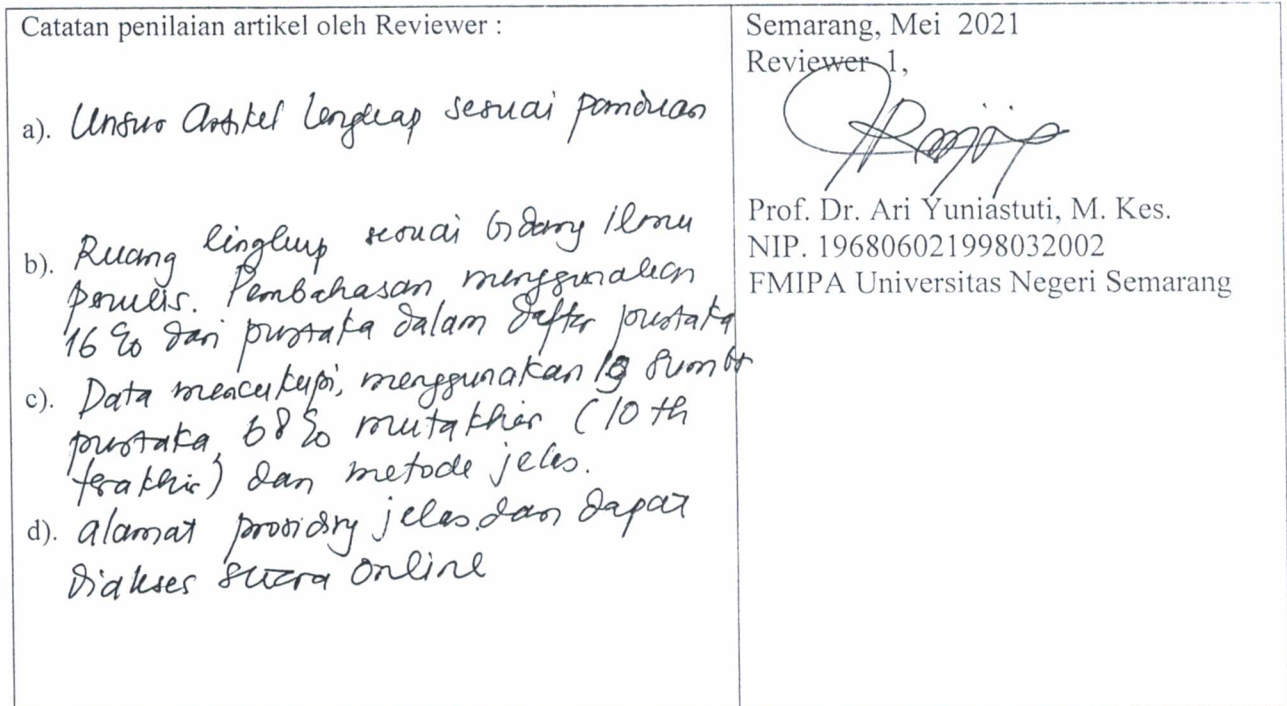 Catatan penilaian artikel oleh Reviewer :
a). Unsur Artikel lengkap sesuai panduan
b). Ruang lingkup sesuai bidang ilmu
penulis. Pembahasan menggunakan
16 % dari pustaka dalam daftar pustaka
c). Data mencukupi, menggunakan sumber
pustaka, 68 % mutakhir (10 th
terakhir) dan metode jelas.
d). alamat prosiding jelas dan dapat
diakses secara online
Semarang, Mei 2021
Reviewer 1,
Prof. Dr. Ari Yuniastuti, M. Kes.
NIP. 196806021998032002
FMIPA Universitas Negeri Semarang